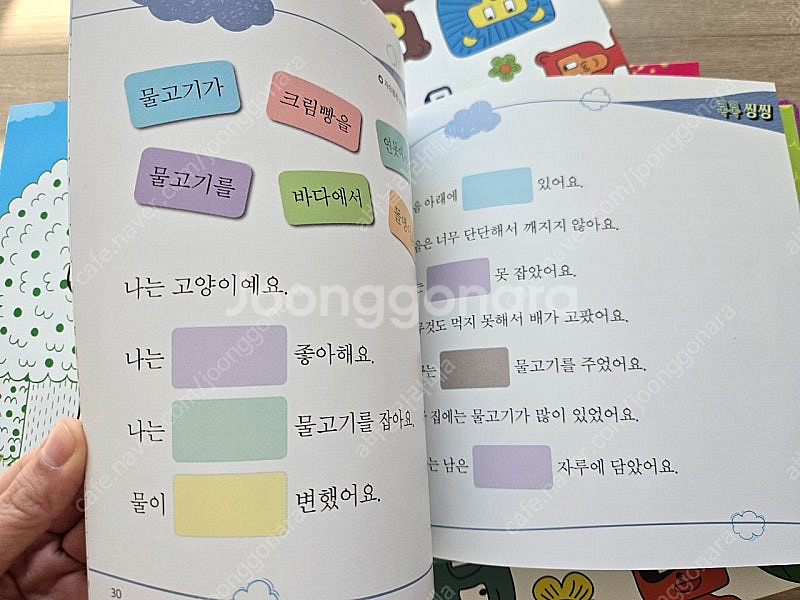 물고기가
크림빵을
물고기를
바다에서
나는 고양이예요.
나는 좋아해요.
나는 물고기를 잡아요.
물이 변했어요.
30
쿡쿡 씽씽
아래에 있어요.
너무 단단해서 깨지지 않아요.
못 잡았어요.
먹지 못해서 배가 고팠어요.
물고기를 주었어요.
집에는 물고기가 많이 있었어요.
남은 자루에 담았어요.
Joonggonara
cafe.naver.com/joonggonara